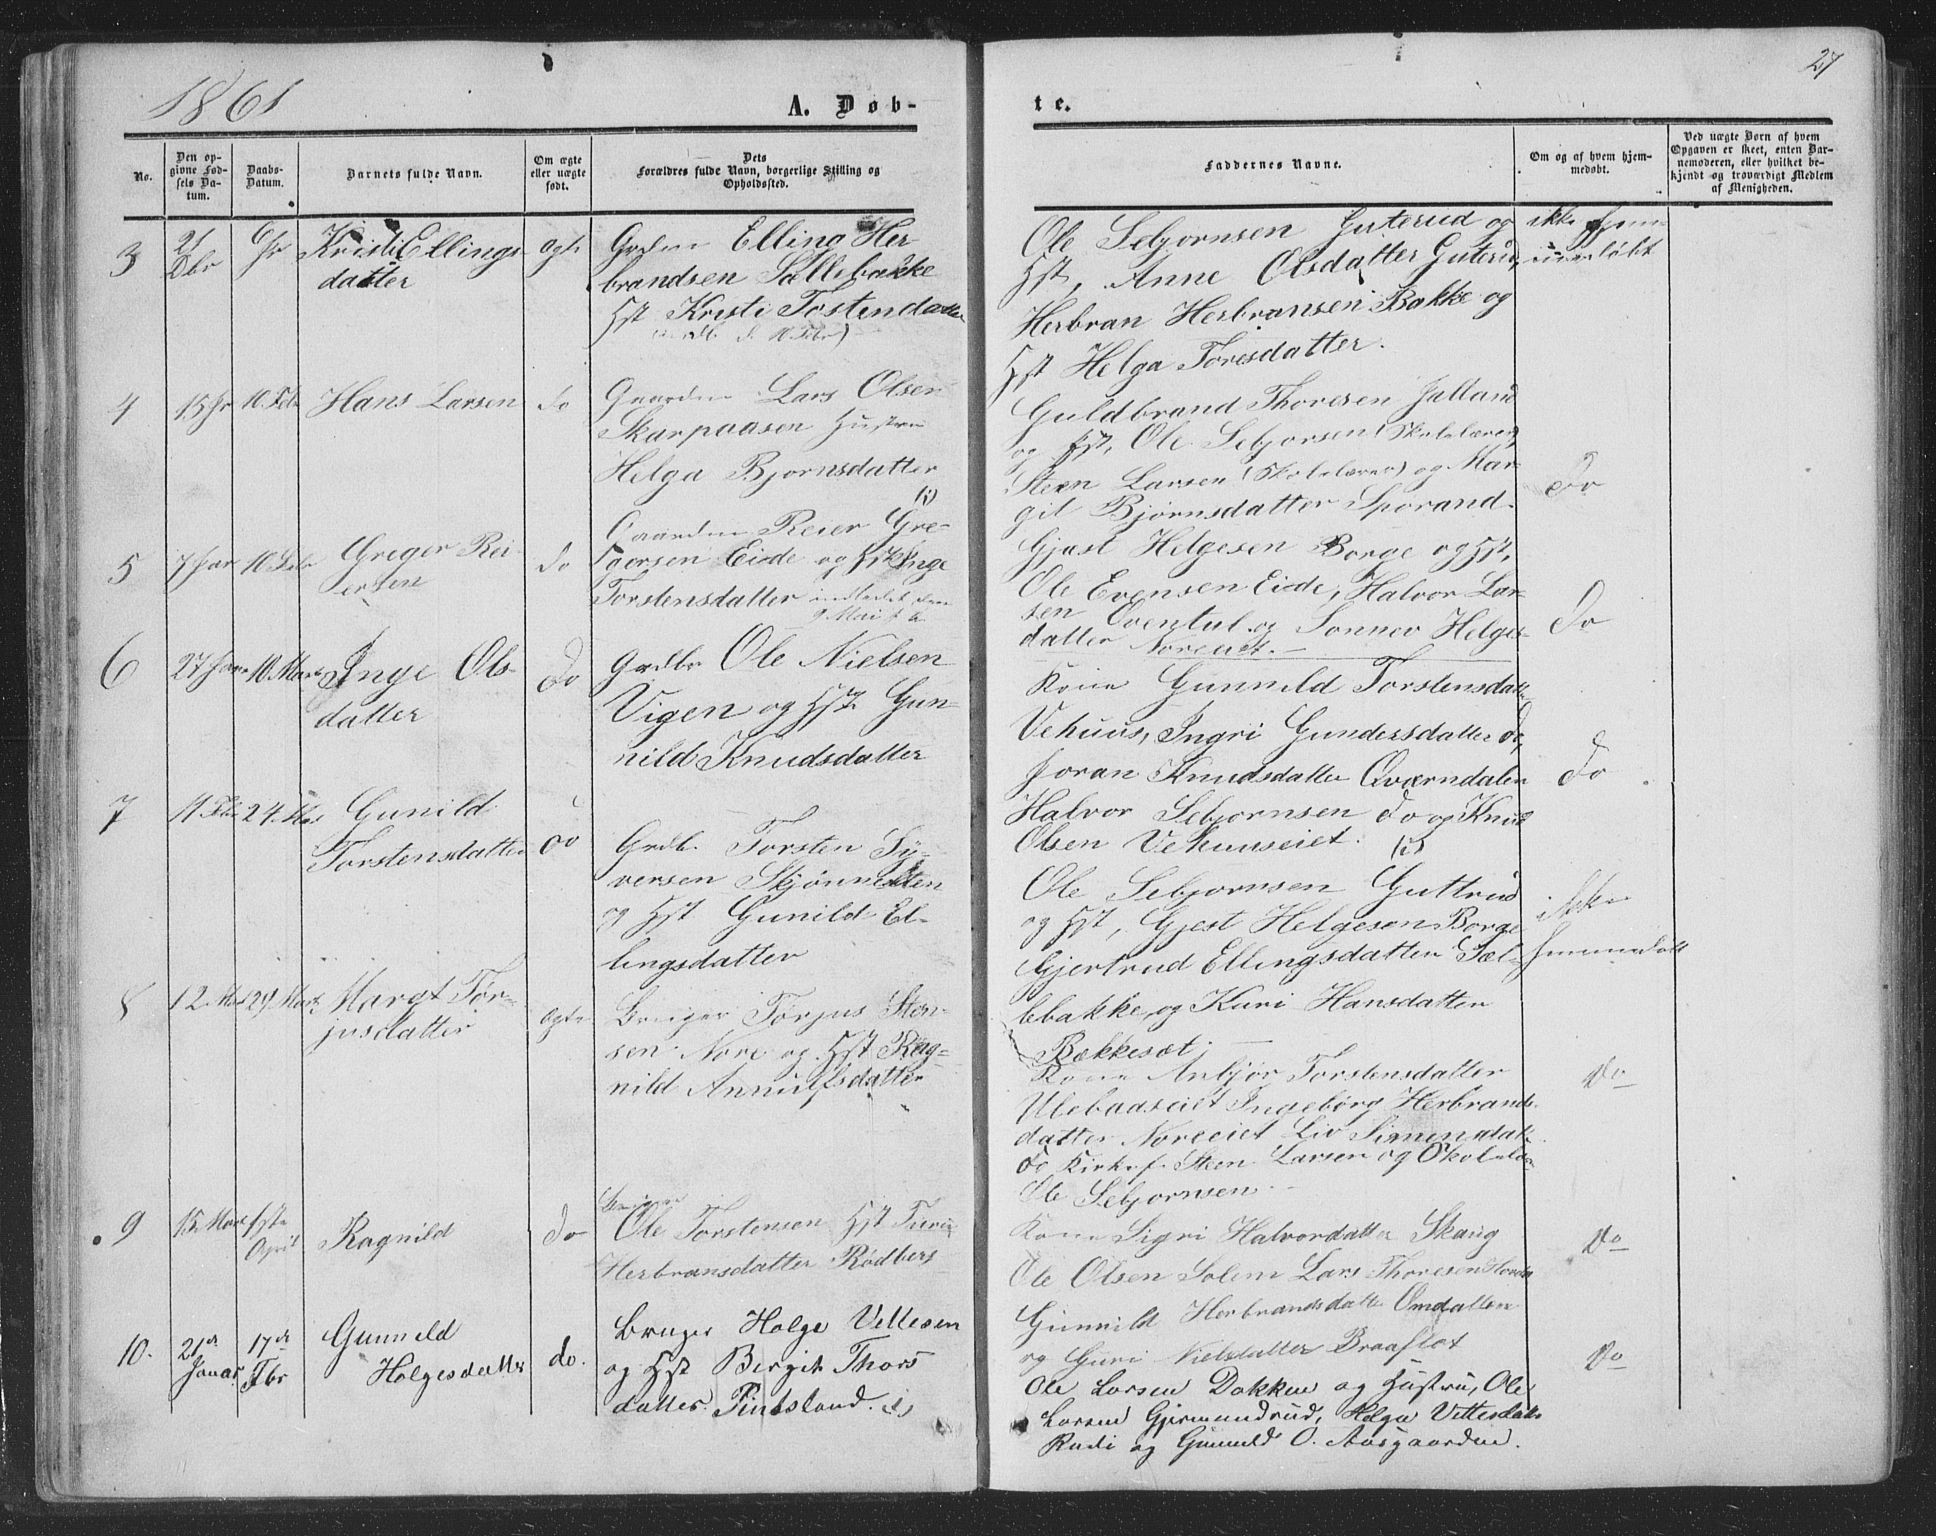 1861
A. Døb-
te.
27
No.
Den opgivne Fødsels Datum.
Daabs-Datum.
Barnets fulde Navn.
Om ægte eller uægte født.
Dets Forældres fulde Navn, borgerlige Stilling og Opholdssted.
Faddernes Navne.
Om og af hvem hjemmedøbt.
Ved uægte Børn af hvem Opgaven er skeet, enten Barnemoderen, eller hvilket bekjendt og troværdigt Medlem af Menigheden.
3
21 Dbr
Kristi Ellings
datter
ogte
Elling Her
brandsen Sællebakke
Hst Kristi Tostendatter
Ole Sebjornsen Guterud og
Hst, Anne Olsdatter Guterud,
Herbran Herbransen Bakke og
Hst Helga Toresdatter.
ikke
4
15 Jr
10 Febr
Hans Larsen
do
Lars Olsen
Skarpaasen Hustru
Helga Bjornsdatter
Guldbrand Thoresen
og Hst, Ole Sebjorsen (Skolelærer)
Steen Larsen (Skolelærer) og Mar-
git Bjørnsdatter Sporand.
Do
5
7 Jar
10 Febr
Greger Rei-
ersen
do
Reier Gre-
gersen Eide og Hst Inge
Torstensdatter
Gjæst Helgesen Borge og Hst,
Ole Evensen Eide, Halvor Lar-
sen og Sonnev Helges-
datter Noreiet.
Do
6
27 Jan
10 Marts
Inge Ols-
datter
Do
Grdbr Ole Nielsen
Vigen og Hst Gun-
nild Knudsdatter
Kone Gunnild Torstensdatter
Vehuus, Ingri Gundersdatter do,
Joran Knudsdatter Qværndalen
Halvor Sebjornsen do og Knud
Olsen Vehuuseiet.
Do
7
11 Febr
24 Mar
Gunild
Torstensdatter
do
Grdb. Torsten Sy-
versen Skjønne
og Hst Gunild El-
lingsdatter
Ole Sebjornsen Guttrud
og Hst, Gjest Helgesen Borge
Gjertrud Ellingsdatter Sæl-
lebakke, og Kari Hansdatter
Bækkesæt.
ikke
8
12 Mar
29 Marts
Margt Tør-
jusdatter
ogte
Bruger Tørjus Sten-
sen Nore og Hst Rag-
nild Annulfsdatter
Kone Anbjør Torstensdatter
Ulebaaseiet Ingebørg Herbrands-
datter Noreeiet Liv Simensdat.
do Kirkes. Steen Larsen og
Ole Sebjornsen
Do
9
15 Mar
1ste April
Ragnild
do
Ole Torstensen Hst Turi
Herbransdatter Rødberg
Kone Sigri Halvordatter Skarig
Ole Olsen Solem Lars Thoresen
Gunnild Herbrandsdatter
og Guri Nielsdatter Braaflot
Do
10.
21de Januar
17de Fbr
Gunnild
Helgesdatter
do.
Bruger Helge Vettesen
og Hst Bergit Thors
datter Pintsland.
Ole Larsen Dokken og Hustru, Ole
Larsen Gjermundrud, Helga Vettesdatter
Rudi og Gunnild O. Aasgaarden.
Do